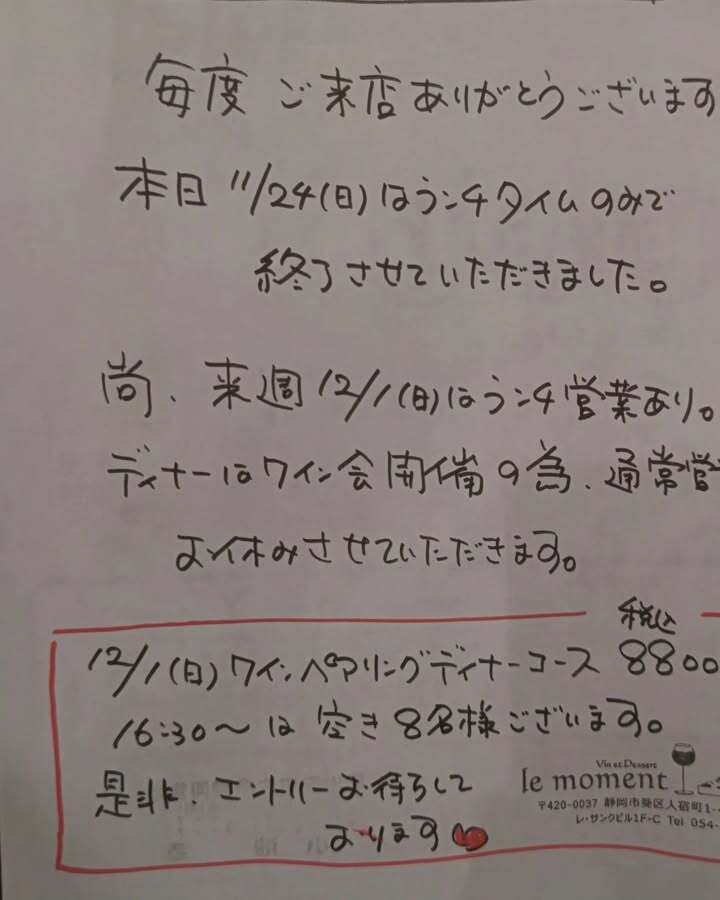 毎度 ご来店ありがとうございます
本日 11/24(日)はランチタイムのみで
終了させていただきました。
尚、来週12/1(日)はランチ営業あり。
ディナーはワイン会開催の為、通常営
お休みさせていただきます。
税込
12/1(日)ワインペアリングディナーコース 8800
16:30〜は 空き8名様ございます。
是非、エントリーお待ちして
おります
Vin et Dessert
le moment
〒420-0037 静岡市葵区人宿町1-
レ・サンクビル1F-C Tel 054-